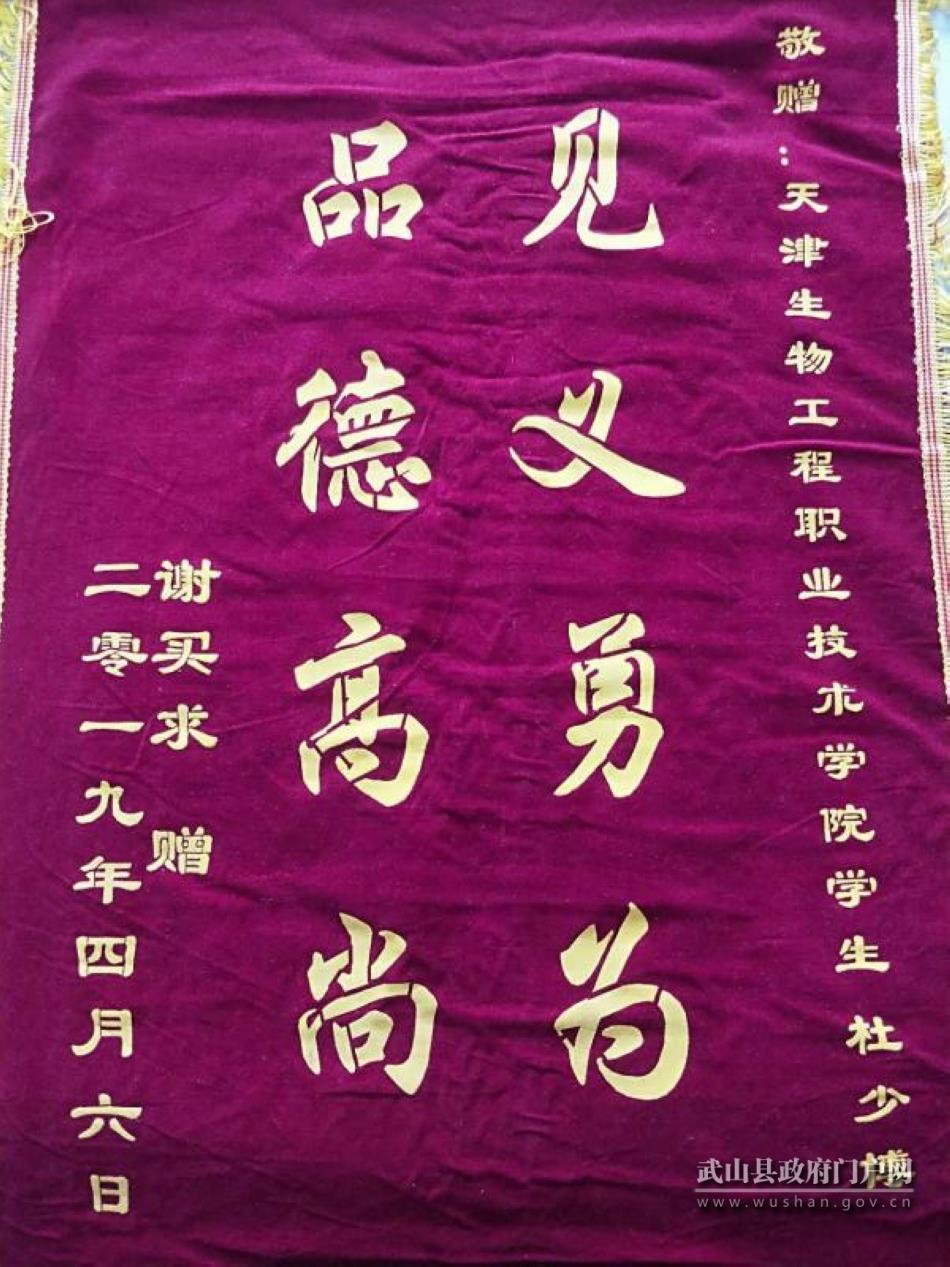 敬赠：天津生物工程职业技术学院学生 杜少
见义勇为
品德高尚
谢买求 赠
二零一九年四月六日
武山县政府门户网
www.wushan.gov.cn